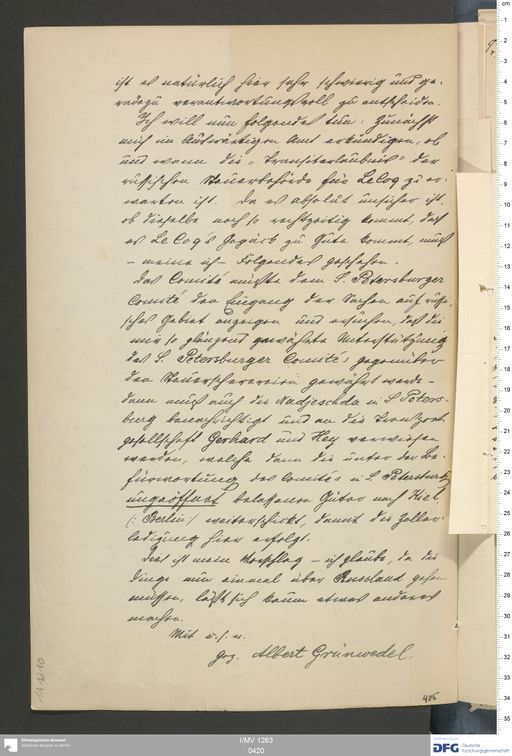 ist es natürlich hier sehr schwierig und ge-
radezu verantwortungsvoll zu entscheiden.
Ich will nun folgendes tun: Zunächst
mich im Auswärtigen Amt erkundigen, ob
und wann die „Transiterlaubnis“ der
russischen Steuerbehörde für LeCoq zu er-
warten ist. Da es absolut unsicher ist,
ob dieselbe noch so rechtzeitig kommt, dass
es LeCoq's Gepäck zu Gute kommt, muss
- meine ich - Folgendes geschehen.
Das Comité müsste dem S. Petersburger
Comité den Eingang der Sachen auf russi-
sches Gebiet anzeigen und ersuchen, dass die
mir so glänzend gewährte Unterstützung
des S. Petersburger Comité's gegenüber
den Steuerscherereien gewährt werde -
dann muss auch die Nadjeschda in S. Peters-
burg benachrichtigt und an die Transport-
gesellschaft Gerhard und Hey verwiesen
werden, welche dann die unter der Be-
fürwortung des Comités in S. Petersburg
ungeöffnet belassenen Güter nach Kiel
(: Berlin) weiterschickt, damit die Zoller-
ledigung hier erfolgt.
Dies ist mein Vorschlag - ich glaube, da die
Dinge nun einmal über Russland gehen
müssen, lässt sich kaum etwas anderes
machen.
Mit u. s. w.
gez. Albert Grünwedel.
405
Ethnologisches Museum
Staatliche Museen zu Berlin
I/MV 1263
0420
Gefördert durch
DFG Deutsche
Forschungsgemeinschaft